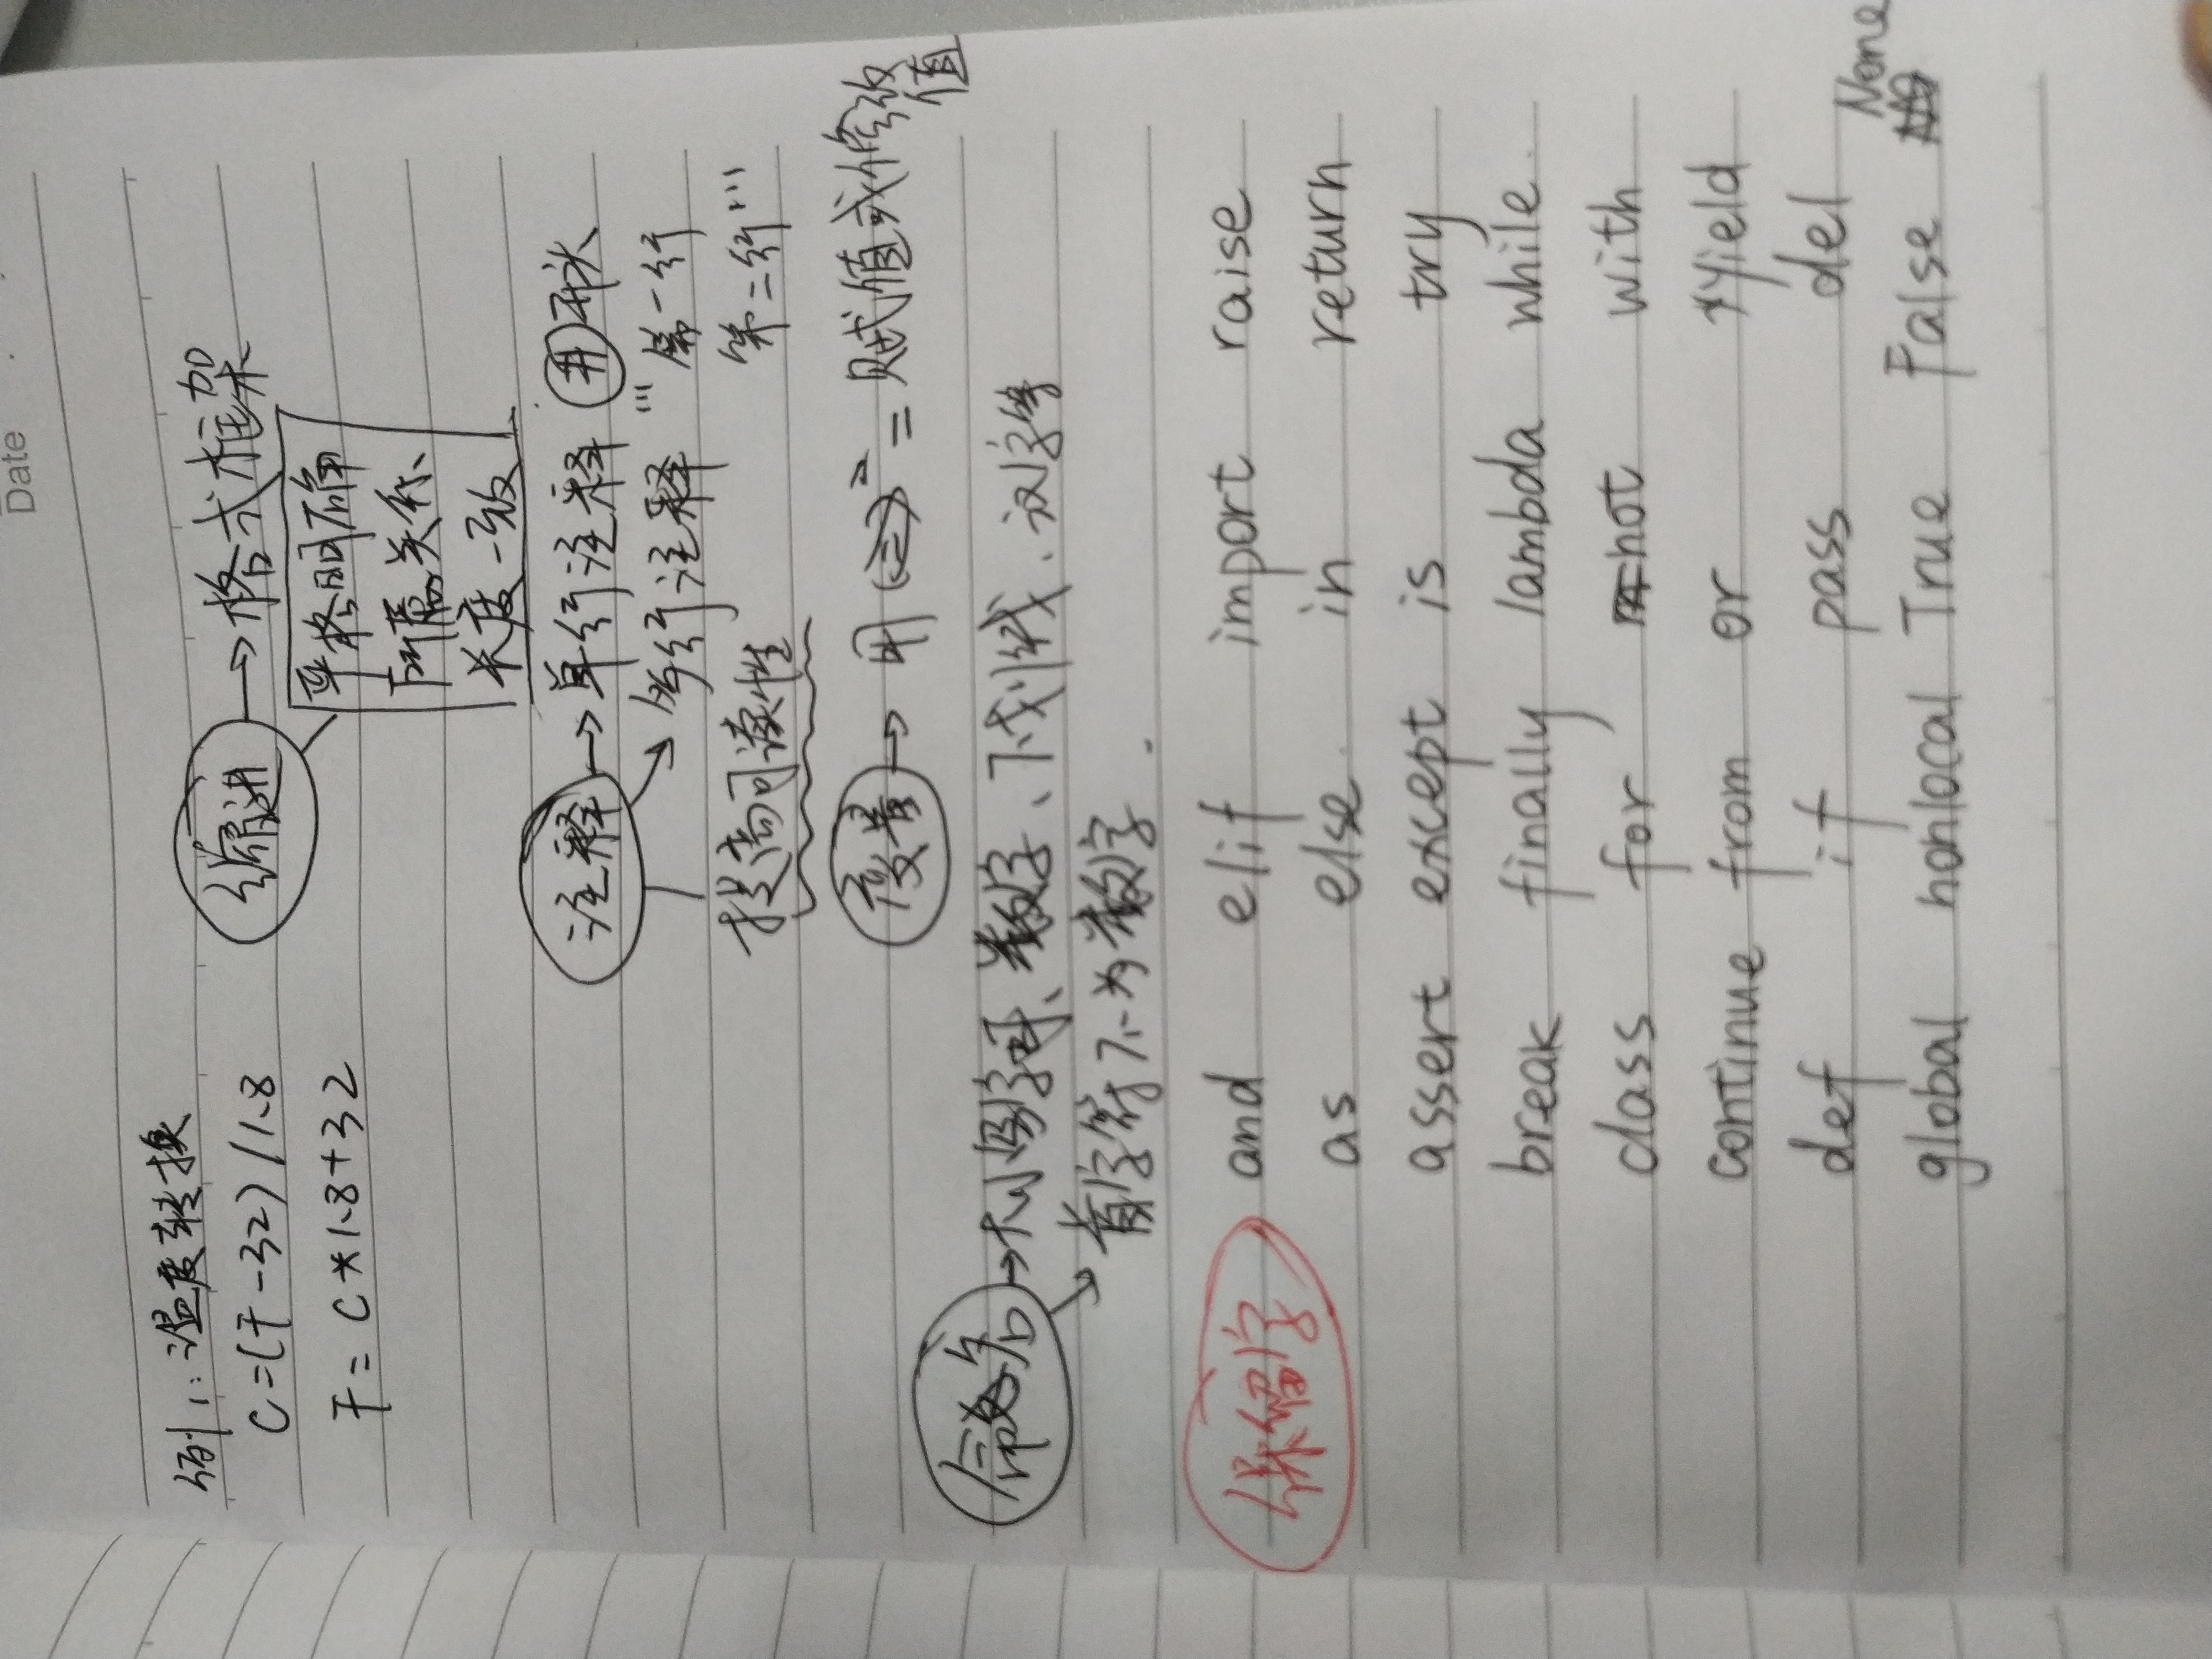 Date
例1:温度转换
C=(F-32)/1.8
F=C*1.8+32
缩进→格式框架
严格明确
所属关系
长度一致
注释→单行注释 #开头
多行注释 ''' 第一行
第二行'''
提高可读性
变量→用"="赋值或修改值
命名→大小写字母、数字、下划线、汉字等
首字符不为数字.
保留字
and elif import raise
as else in return
assert except is try
break finally lambda while
class for not with
continue from or yield
def if pass del
global nonlocal True False None